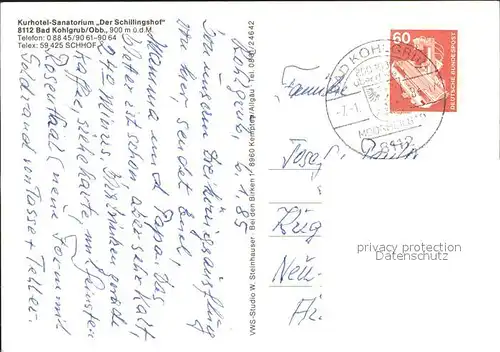 Kurhotel-Sanatorium „Der Schillingshof“
8112 Bad Kohlgrub/Obb., 900 m ü.d.M.
Telefon: 0 88 45/90 61–90 64
Telex: 59 425 SCHHOF
Kohlgrub, 6.1.85
Von unserem Dreikönigsausflug
her sendet Euch,
Mamma und Papa. Das
Wetter ist schön, aber sehr kalt,
24° Minus. Wir trinken gerade
Kaffee, siehe Karte, mit feinsten
Rosenthal (neue Form mit
Goldrand um Tasse + Teller
VWS-Studio W. Steinhauser · Bei den Birken 17 · 8960 Kempten/Allgäu · Tel. 0831/24642
Familie
Josef
Krug
Neu-
BAD KOHLGRUB
-7.-1.
8112
60
DEUTSCHE BUNDESPOST
privacy protection
Datenschutz